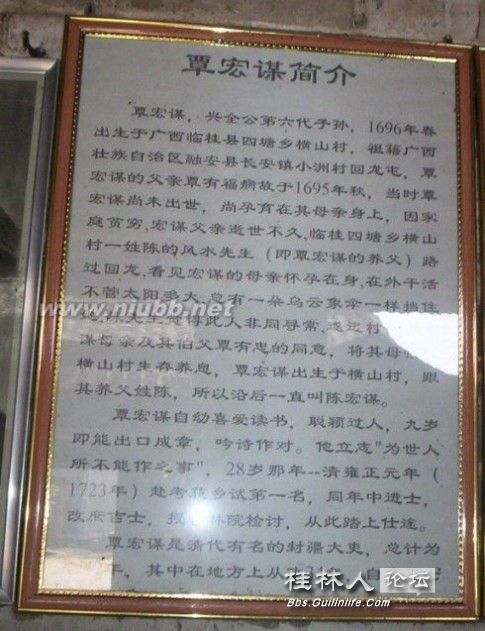 覃宏谋简介
覃宏谋，兴全公第六代子孙，1696年春
出生于广西临桂县四塘乡横山村，祖籍广西
壮族自治区融安县长安镇小洲村回龙屯，覃
宏谋的父亲覃有福病故于1695年秋，当时覃
宏谋尚未出世，尚孕育在其母亲身上，因家
庭贫穷，宏谋父亲逝世不久，临桂四塘乡横山
村一姓陈的风水先生（即覃宏谋的养父）路
过回龙，看见宏谋的母亲怀孕在身，在外干活
不管太阳多大，总有一朵乌云象伞一样挡住
此人非同寻常，
谋母亲及其伯父覃有忠的同意，将其母
横山村生存养息，覃宏谋出生于横山村，跟
其养父姓陈，所以沿后一直叫陈宏谋。
覃宏谋自幼喜爱读书，聪颖过人，九岁
即能出口成章，吟诗作对。他立志"为世人
所不能作之事"，28岁那年--清雍正元年（
1723年）赴考获乡试第一名，同年中进士，
改庶吉士，授 林院检讨，从此踏上仕途。
覃宏谋是清代有名的封疆大吏，总计为
年，其中在地方上从
www.niubb.net
桂林人论坛
Bbs.Guilinlife.com